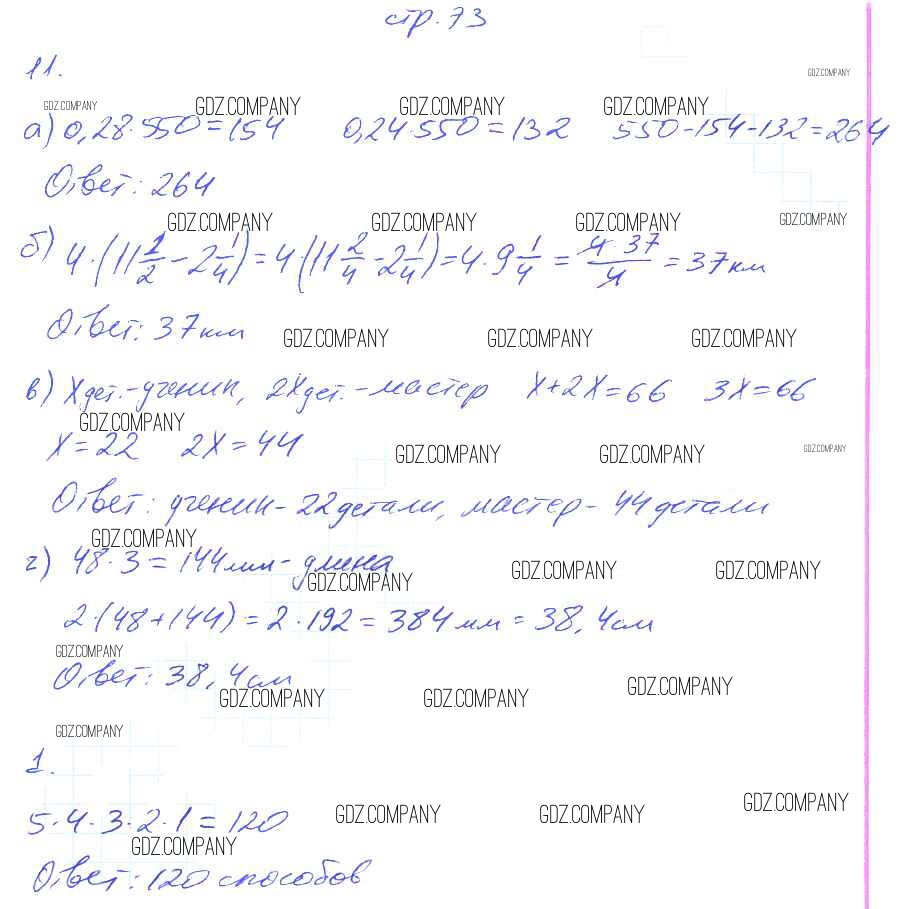 стр. 73
11.
GDZ.COMPANY
GDZ.COMPANY GDZ.COMPANY GDZ.COMPANY GDZ.COMPANY
а) 0,28·550=154 0,24·550=132 550-154-132=264
Ответ: 264
GDZ.COMPANY GDZ.COMPANY GDZ.COMPANY GDZ.COMPANY
б) 4·(11 1/2 - 2 1/4) = 4(11 2/4 - 2 1/4) = 4·9 1/4 = 4·37/4 = 37 км
Ответ: 37 км GDZ.COMPANY GDZ.COMPANY GDZ.COMPANY
в) X дет.-ученик, 2X дет.-мастер X+2X=66 3X=66
GDZ.COMPANY
X=22 2X=44 GDZ.COMPANY GDZ.COMPANY GDZ.COMPANY
Ответ: ученик-22 детали, мастер-44 детали
GDZ.COMPANY
г) 48·3=144 мм-длина GDZ.COMPANY GDZ.COMPANY
GDZ.COMPANY
2·(48+144)=2·192=384 мм=38,4 см
GDZ.COMPANY
Ответ: 38,4 см
GDZ.COMPANY GDZ.COMPANY GDZ.COMPANY
GDZ.COMPANY
1.
5·4·3·2·1=120 GDZ.COMPANY GDZ.COMPANY GDZ.COMPANY
GDZ.COMPANY
Ответ: 120 способов